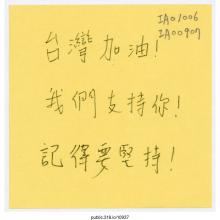 IA01006
IA00907
台灣加油!
我們支持你!
記得要堅持!
public.318.io/10937